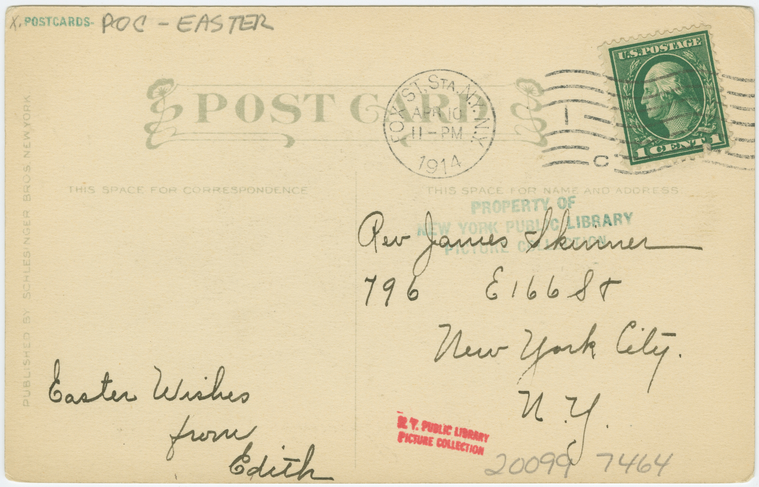 X. POSTCARDS- POC - EASTER
POST CARD
FOX ST. STA. N.Y. N.Y.
APR 10
11-PM
1914
U.S. POSTAGE
1 CENT 1
C
THIS SPACE FOR CORRESPONDENCE
THIS SPACE FOR NAME AND ADDRESS.
PUBLISHED BY SCHLESINGER BROS. NEW YORK
PROPERTY OF
NEW YORK PUBLIC LIBRARY
PICTURE COLLECTION
Rev James Skinner
796 E 166 St
New York City.
N.Y.
Easter Wishes
from
Edith
N. Y. PUBLIC LIBRARY
PICTURE COLLECTION
20099 7464